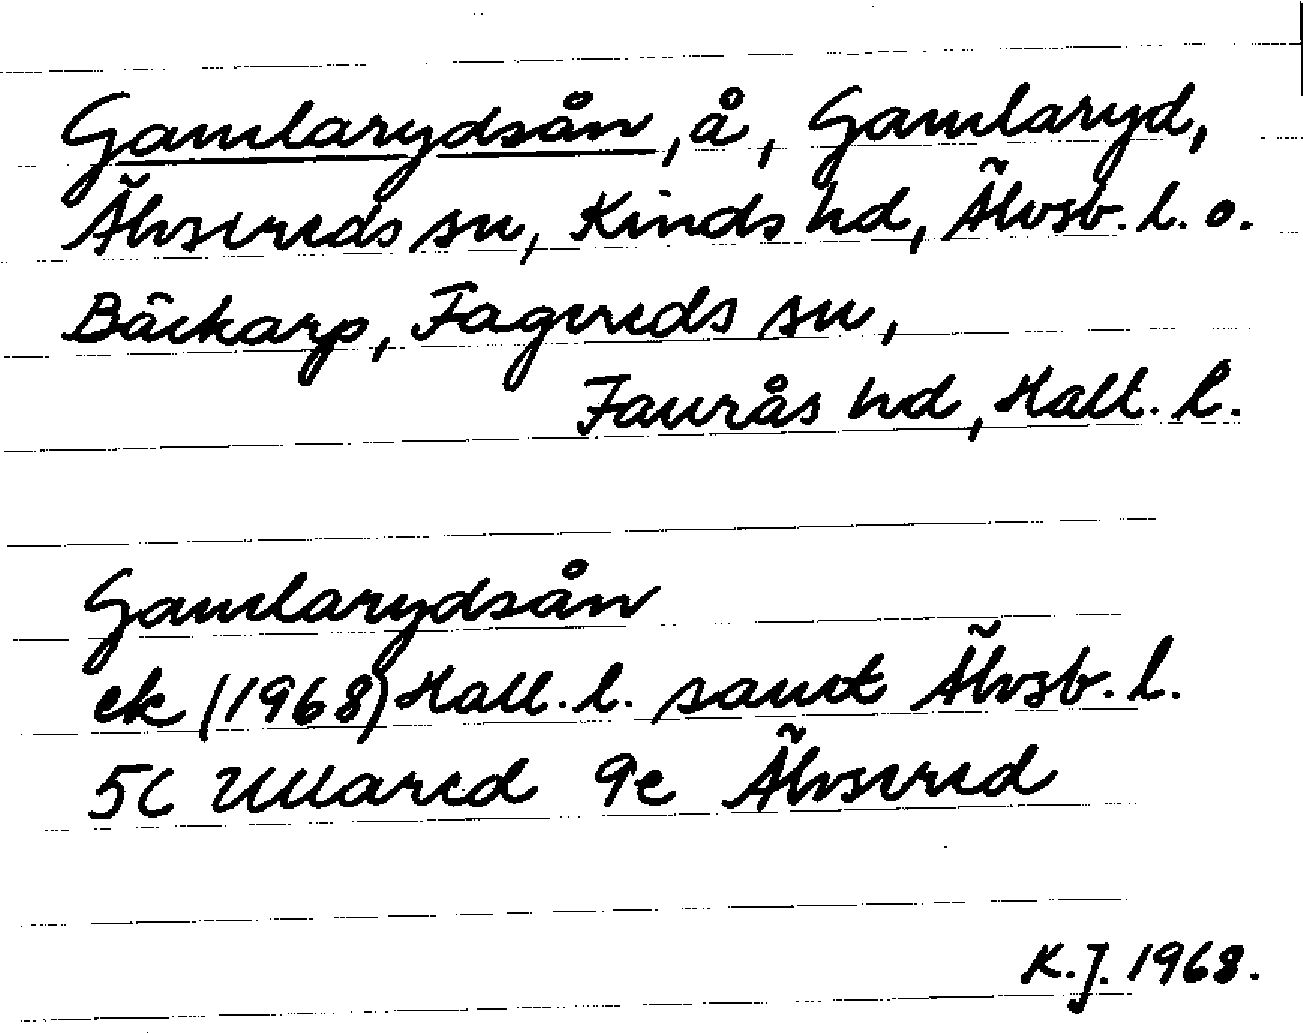 Gamlarydsån, å, Gamlaryd,
Älvsereds sn, Kinds hd, Älvsb. l. o.
Bäckarp, Fagereds sn,
Faurås hd, Hall. l.
Gamlarydsån
ek (1968) Hall. l. samt Älvsb. l.
5C Ullared 9e Älvsered
K.J. 1968.